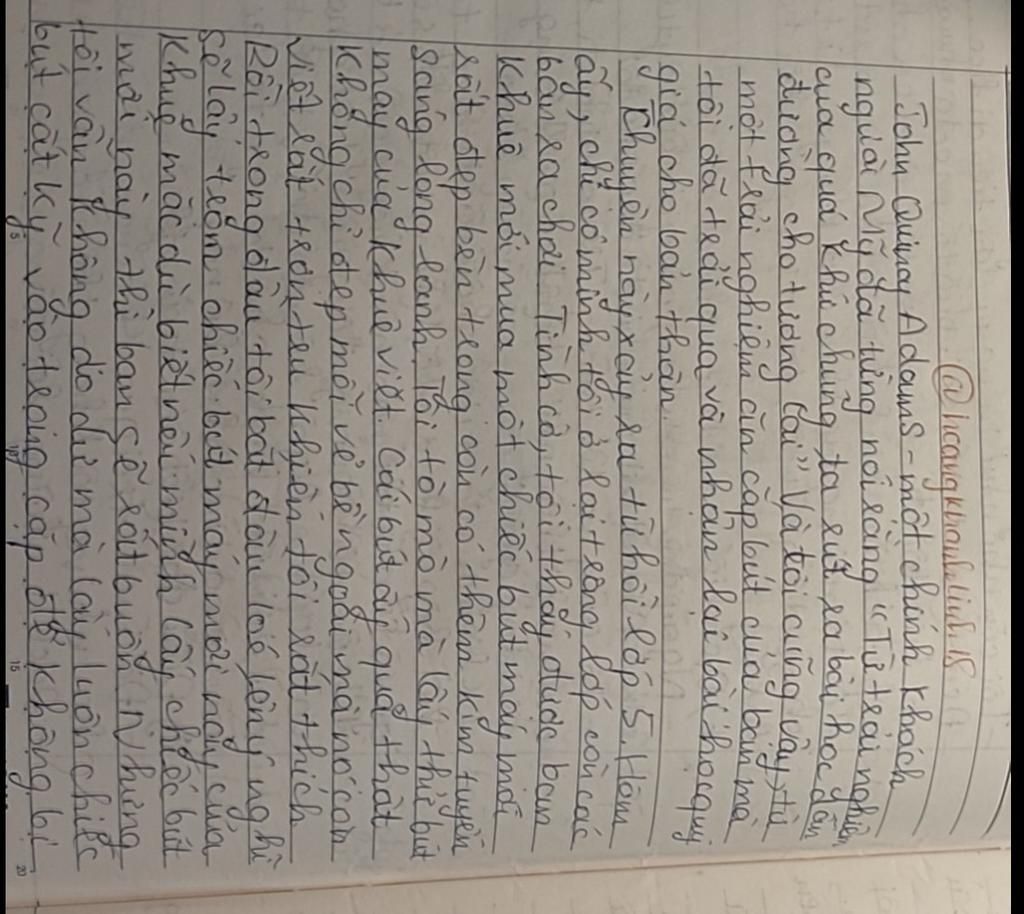 @hoangkhanhlinh.18
John Quincy Adams - một chính khách
người Mỹ đã từng nói rằng "Từ trải nghiệm
của quá khứ chúng ta rút ra bài học dẫn
đường cho tương lai" Và tôi cũng vậy, từ
một trải nghiệm ăn cắp bút của bạn mà
tôi đã trải qua và nhận lại bài học quý
giá cho bản thân.
Chuyện này xảy ra từ hồi lớp 5. Hôm
ấy, chỉ có mình tôi ở lại trong lớp còn các
bạn ra chơi. Tình cờ, tôi thấy được bạn
Khuê mới mua một chiếc bút máy mới
rất đẹp bên trong còn có thêm kim tuyến
sáng long lanh. Tôi tò mò mà lấy thử bút
máy của Khuê viết. Cái bút ấy quả thật
không chỉ đẹp mỗi vẻ bề ngoài mà nó còn
viết rất trơn tru khiến tôi rất thích
Rồi trong đầu tôi bắt đầu loé lên ý nghĩ
sẽ lấy trộm chiếc bút máy mới này của
Khuê mặc dù biết nếu mình lấy chiếc bút
mới này thì bạn sẽ rất buồn. Nhưng
tôi vẫn không do dự mà lấy luôn chiếc
bút cất kỹ vào trong cặp để không bị
5
10
15
20